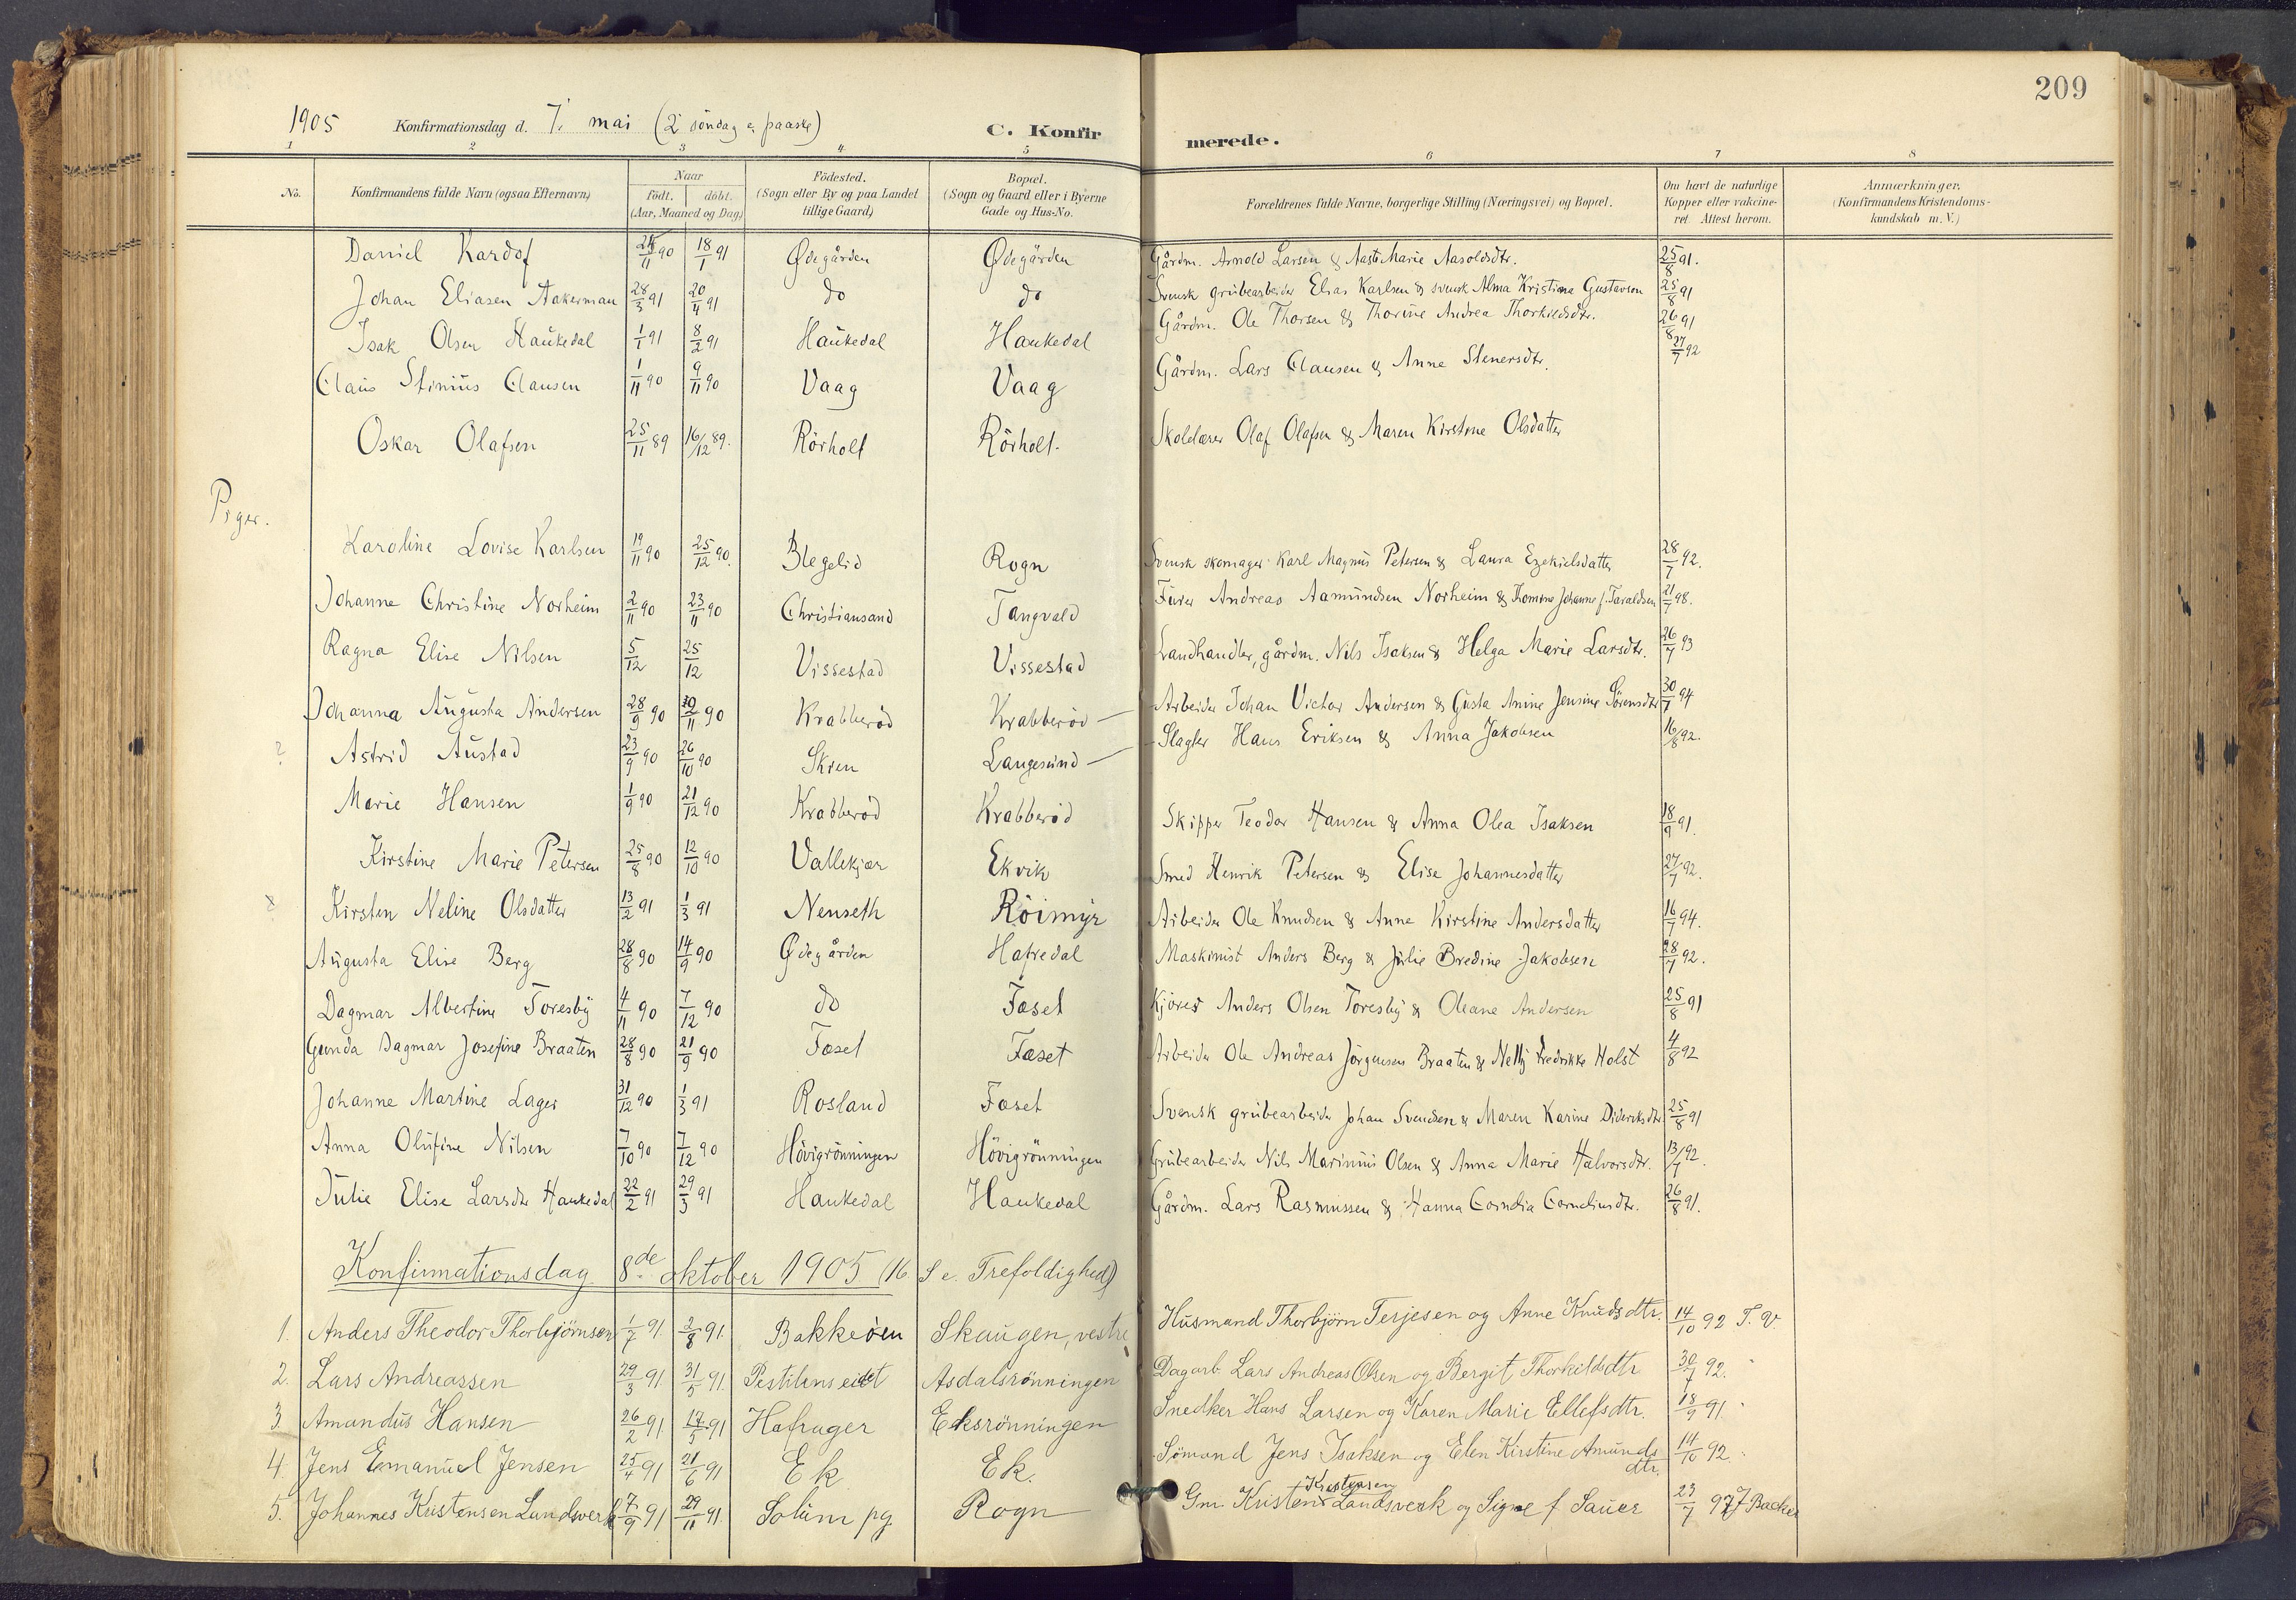 209
1905 Konfirmationsdag d. 7. mai (2 söndag e. paaske) C. Konfirmerede.
1 2 3 4 5 6 7 8
No. Konfirmandens fulde Navn (ogsaa Efternavn) Naar födt. döbt. (Aar, Maaned og Dag) Födested. (Sogn eller By og paa Landet tillige Gaard) Bopæl. (Sogn og Gaard eller i Byerne Gade og Hus-No. Forældrenes fulde Navne, borgerlige Stilling (Næringsvei) og Bopæl. Om havt de naturlige Kopper eller vakcineret. Attest herom. Anmærkninger. (Konfirmandens Kristendomskundskab m. V.)
Daniel 90 18/1 91 Ødegården Ødegården Gårdm. Arnold Larsen & Marie 25/8 91.
Johan Eliasen Aakerman 28/3 91 20/4 91 do do Svensk grubearbeider Elias Karlsen & svensk Alma Kristina Gustavson 25/8 91
Isak Olsen Haukedal 1/1 91 8/2 91 Haukedal Haukedal Gårdm. Ole Thorsen & Thorine Andrea Thorkildsdtr. 26/8 91
Claus Stinius Clausen 1/11 90 9/11 90 Vaag Vaag Gårdm. Lars Clausen & Anne Stenersdtr. 27/7 92
Oskar Olafsen 25/11 89 16/12 89. Rörholt Rörholt. Skolelærer Olaf Olafsen & Maren Kirstine Olsdatter
Piger.
Karoline Lovise Karlsen 19/11 90 25/12 90. Blegelid Rogn Svensk skomager Karl Magnus Petersen & Laura Ezekielsdatter 28/7 92.
Johanne Christine Norheim 2/11 90 23/11 90 Christiansand Tangvald Andreas Aamundsen Norheim & Thomine Johanne f. Taraldsen 21/7 98.
Ragna Elise Nilsen 5/12 25/12 Vissestad Vissestad Landhandler, gårdm. Nils Isaksen & Helga Marie Larsdtr. 26/7 93
Johanna Augusta Andersen 28/9 90 30/11 90 Krabberød Krabberød — Arbeider Johan Victor Andersen & Gusta Anine Jensine Sörensdtr 30/7 94
? Astrid Austad 23/9 90 26/10 90 Skien Langesund — Slagter Hans Eriksen & Anna Jakobsen 16/8 92.
Marie Hansen 1/9 90 21/12 90 Krabberød Krabberød Skipper Teodor Hansen & Anna Olea Isaksen 18/9 91.
Kirstine Marie Petersen 25/8 90 12/10 90 Vallekjær Ekvik Smed Henrik Petersen & Elise Johannesdatter 27/7 92.
Kirsten Neline Olsdatter 13/2 91 1/3 91 Nenseth Röimyr Arbeider Ole Knudsen & Anne Kirstine Andersdatter 16/7 94.
Augusta Elise Berg 28/8 90 14/9 90 Ødegården Hafredal Maskinist Anders Berg & Julie Bredine Jakobsen 28/7 92.
Dagmar Albertine Toresby 4/11 90 7/12 90 do Fæset Kjörer Anders Olsen Toresby & Oleane Andersen 25/8 91
Gunda Dagmar Josefine Braaten 28/8 90 21/9 90 Fæset Fæset Arbeider Ole Andreas Jörgensen Braaten & Nelly Fredrikke Holst 4/8 92
Johanne Martine Lager 31/12 90 1/3 91 Rosland Fæset Svensk grubearbeider Johan Svendsen & Maren Karine Dideriksdtr 25/8 91
Anna Olufine Nilsen 7/10 90 7/12 90 Hövigrönningen Hövigrönningen Grubearbeider Nils Marinius Olsen & Anna Marie Halvorsdtr. 13/7 92.
Julie Elise Larsdtr Haukedal 22/2 91 29/3 91 Haukedal Haukedal Gårdm. Lars Rasmussen & Hanna Cornelia Corneliusdtr. 26/8 91.
Konfirmationsdag 8de oktober 1905 (16. S e. Trefoldighed)
1. Anders Theodor Thorbjörnsen 1/7 91. 2/8 91. Bakkeöen Skaugen, vestre Husmand Thorbjörn Terjesen og Anne Knudsdtr. 14/10 92 T. V.
2. Lars Andreassen 29/3 91. 31/5 91. Pestilenseidet Asdalsrönningen Dagarb. Lars Andreas Olsen og Bergit Thorkildsdtr 30/7 92. "
3. Amandus Hansen 26/2 91 17/5 91 Hafsager Eeksrönningen Snedker Hans Larsen og Karen Marie Ellefsdtr. 18/9 91 "
4. Jens Emanuel Jensen 25/4 91 21/6 91 Ek Ek. Sömand Jens Isaksen og Elen Kirstine Amundsdtr. 14/10 92. "
5. Johannes Kristensen Landsverk 7/9 91 29/11 91. Solum pg. Rogn Gm. Kristen Kristensen Landsverk og Signe f Sauer 23/7 97 J Backer